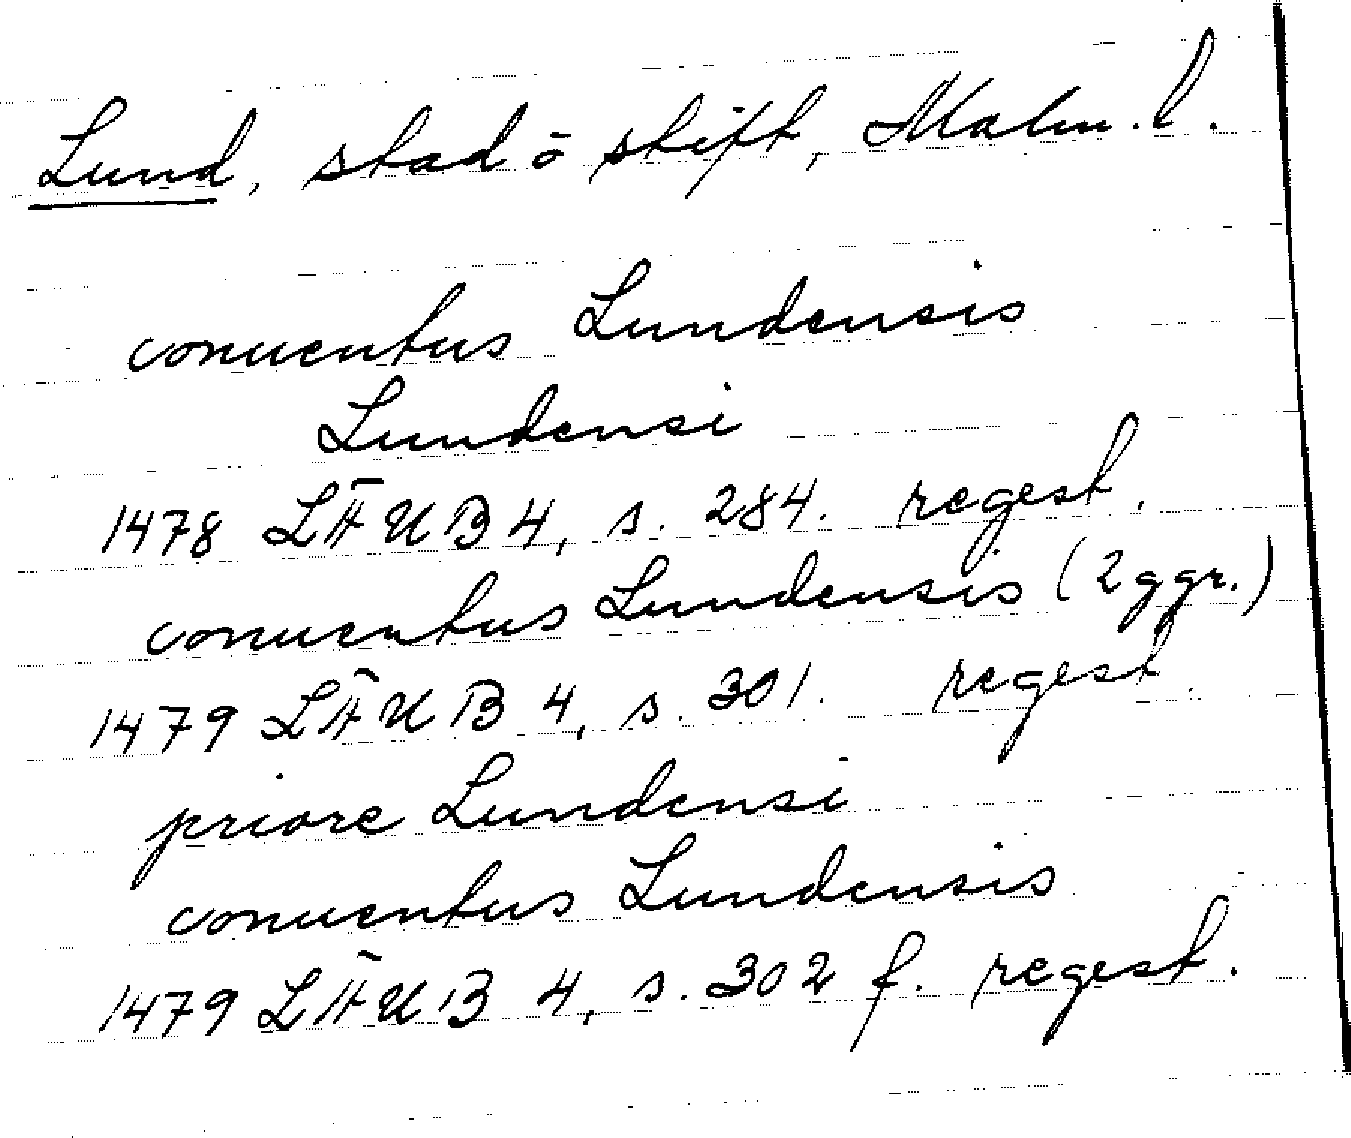 Lund, stad o stift, Malm. l.
conuentus Lundensis
Lundensi
1478 LÄUB 4, s. 284. regest.
conuentus Lundensis (2 ggr.)
1479 LÄUB 4, s. 301. regest.
priore Lundensi
conuentus Lundensis
1479 LÄUB 4, s. 302 f. regest.